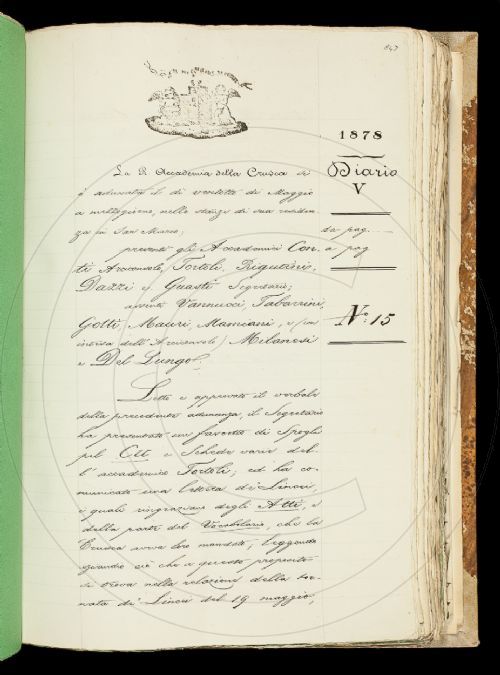 843
1878
Diario
V
da pag.
a pag
Nº: 15
La R. Accademia della Crusca si
è adunata il dì ventotto di Maggio
a mezzogiorno, nelle stanze di sua residen-
za in San Marco;
presenti gli Accademici Con-
ti Arciconsolo, Tortoli, Rigutini,
Dazzi e Guasti Segretario;
assenti Vannucci, Tabarrini,
Gotti, Mauri, Mamiani, e (con
intesa dell'Arciconsolo) Milanesi
e Del Lungo.
Letto e approvato il verbale
della precedente adunanza, il Segretario
ha presentato un fascetto di Spogli
pel Citt. e Schede varie del-
l'accademico Tortoli; ed ha co-
municato una lettera di Lincei,
i quali ringraziano degli Atti, e
della parte del Vocabolario, che la
Crusca aveva loro mandato; leggendo
quando ciò che a questo proposito
si trova nella relazione della tor-
nata di Lincei del 19 maggio,